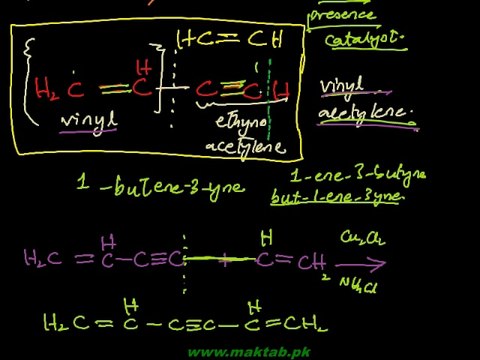 presence
catalyst.
HC≡CH
H₂C=CH-C≡C-H
vinyl
ethyne
acetylene
vinyl
acetylene.
1-butene-3-yne
1-ene-3-butyne
but-1-ene-3yne.
H₂C=CH-C≡C + CH=CH₂
Cu₂Cl₂
NH₄Cl
H₂C=CH-C≡C-CH=CH₂
www.maktab.pk